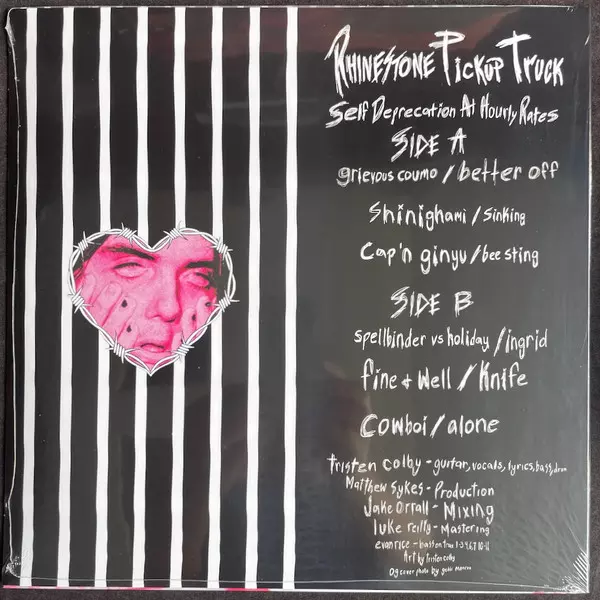 RHINESTONE PICKUP TRUCK
Self Deprecation At Hourly Rates
SIDE A
grievous coumo / better off
Shinighami / Sinking
Cap'n ginyu / bee sting
SIDE B
spellbinder vs holiday / ingrid
fine + well / Knife
Cowboi / alone
tristen colby - guitar, vocals, lyrics, bass, drum
Matthew Sykes - Production
Jake Orrall - Mixing
luke reilly - Mastering
evan rice - bass on
Art by tristen colby
Og cover photo by